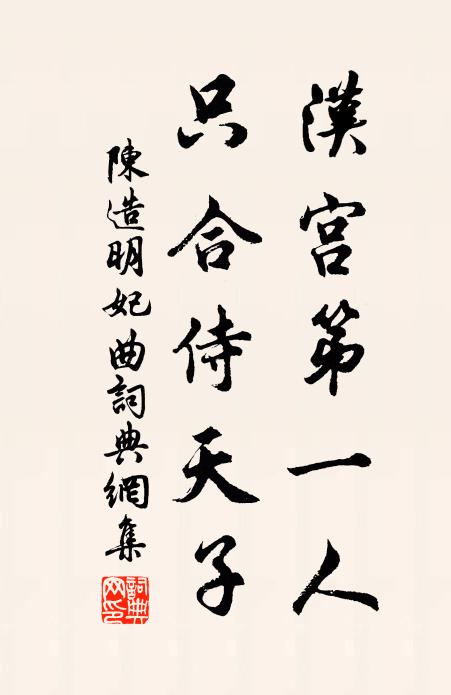 漢宮第一人
只合侍天子
陳造明妃曲詞典網集
詞典網印